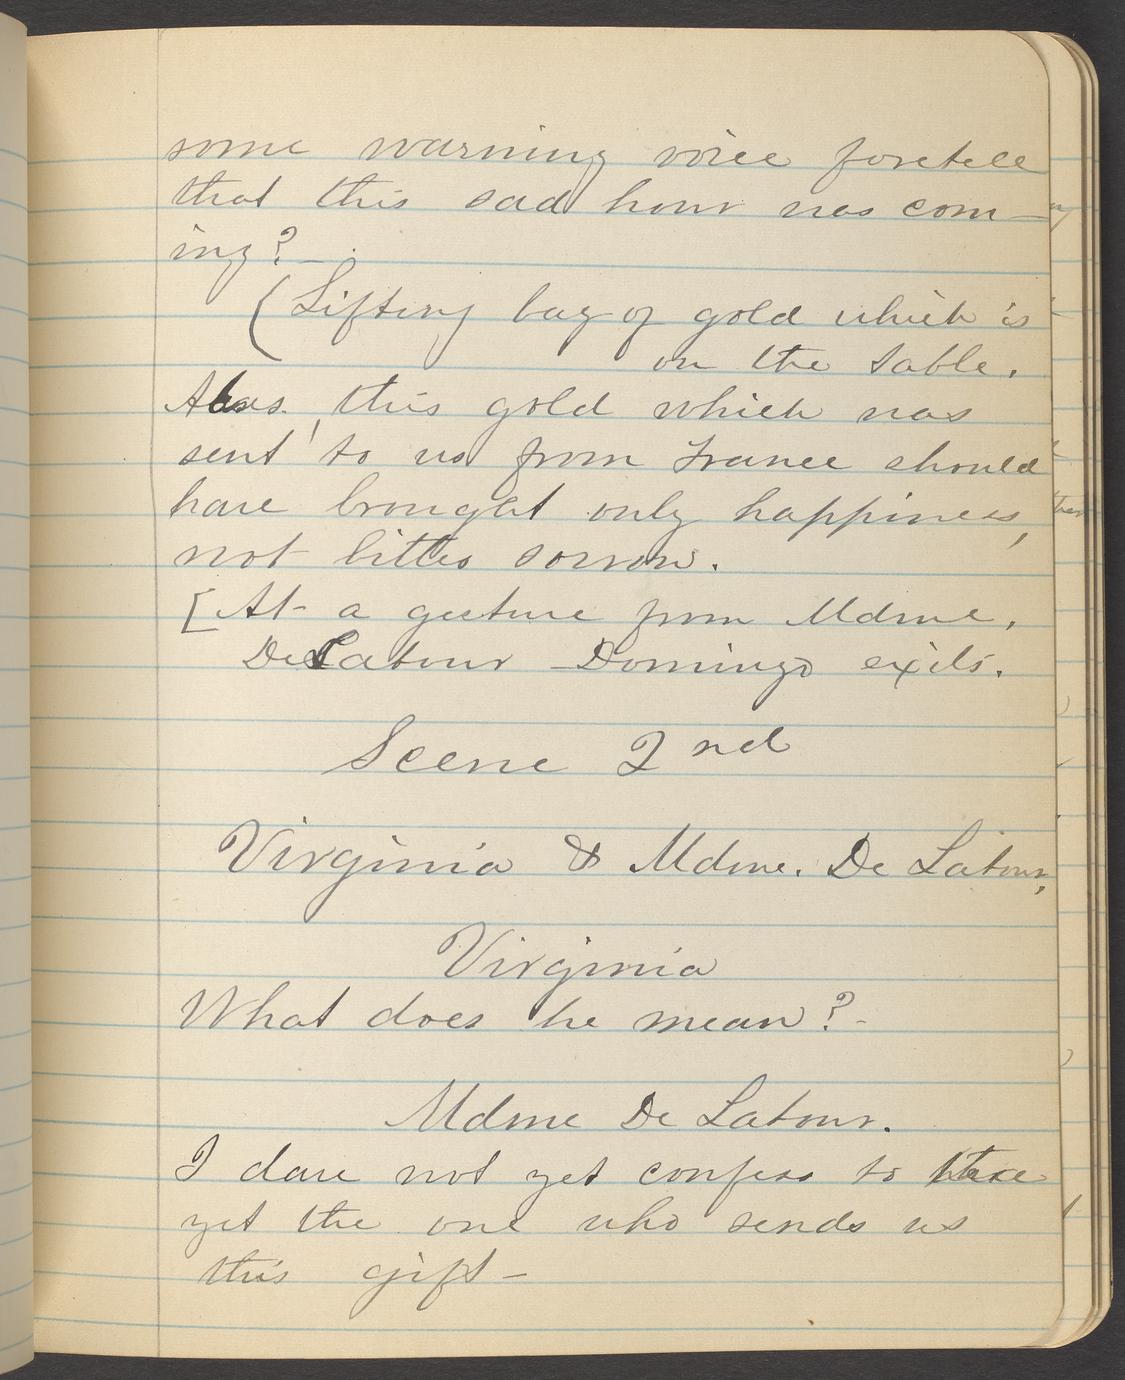 some warning voice foretell
that this sad hour was com-
ing? -
(Lifting bag of gold which is
on the table.
Alas, this gold which was
sent to us from France should
have brought only happiness,
not bitter sorrow.
[At a gesture from Mdme,
De Latour - Domingo exits.
Scene 2nd
Virginia & Mdme. De Latour,
Virginia
What does he mean? -
Mdme De Latour.
I dare not yet confess to
yet the one who sends us
this gift -